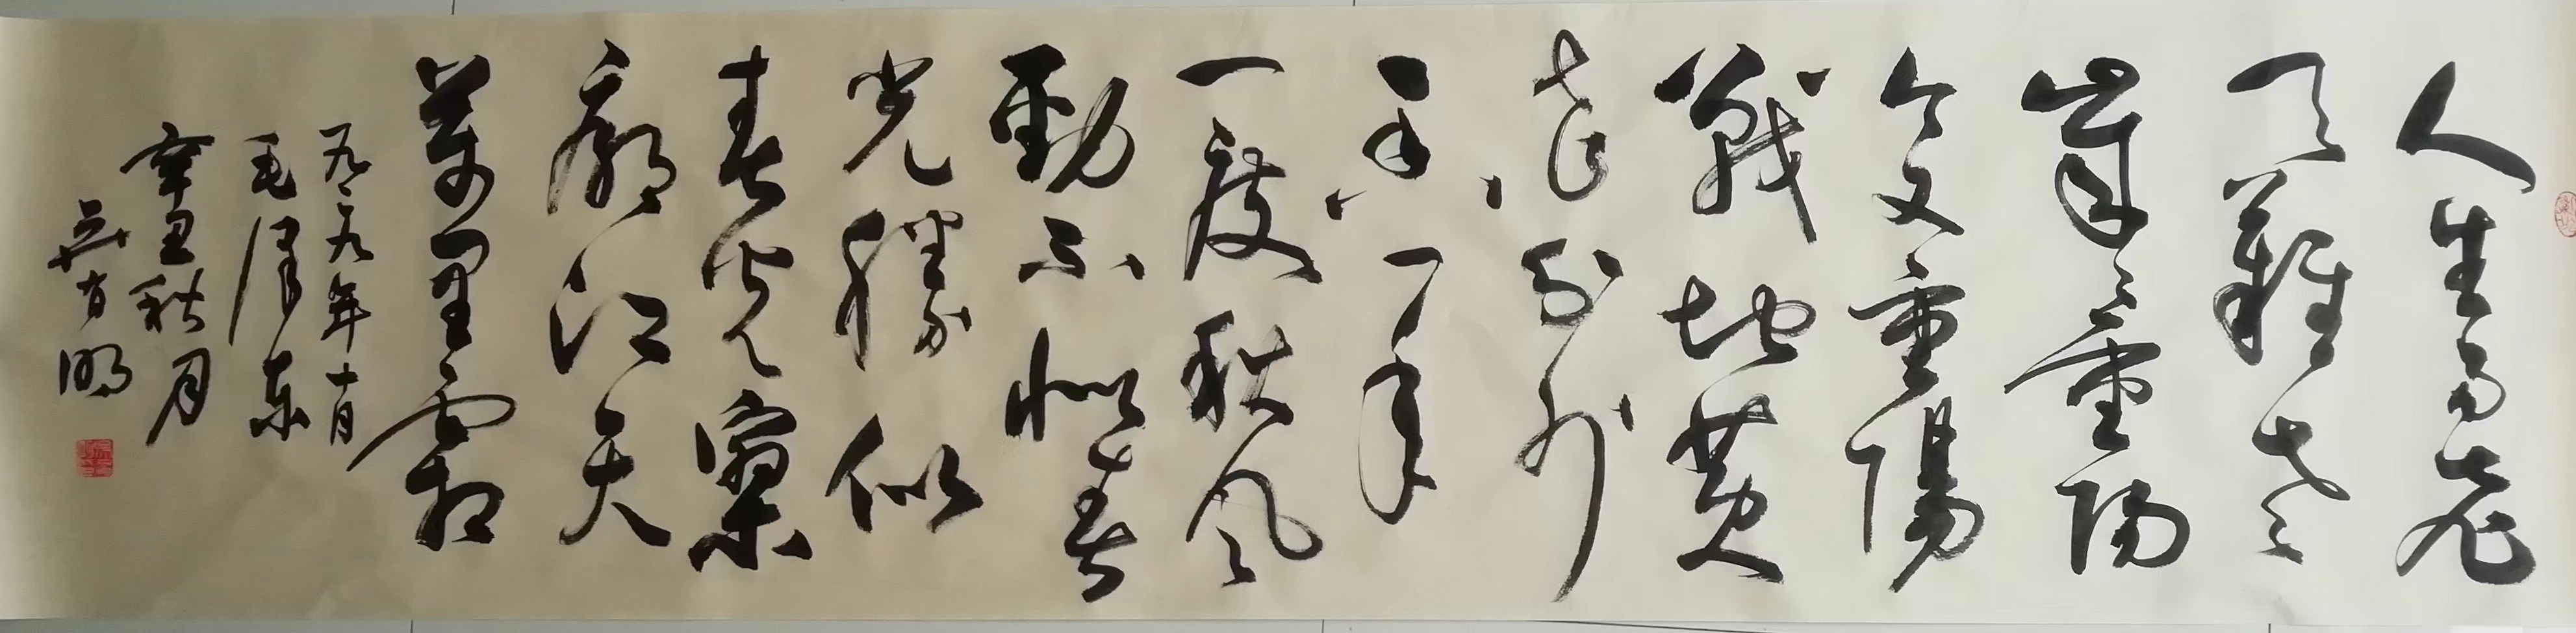 人生易老
天難老
歲々重阳
今又重陽
戰地黄
花分外
香一年
一度秋风
勁不似春
光勝似
春光寥
廓江天
萬里霜
一九二九年十月
毛澤东
辛丑秋月
明